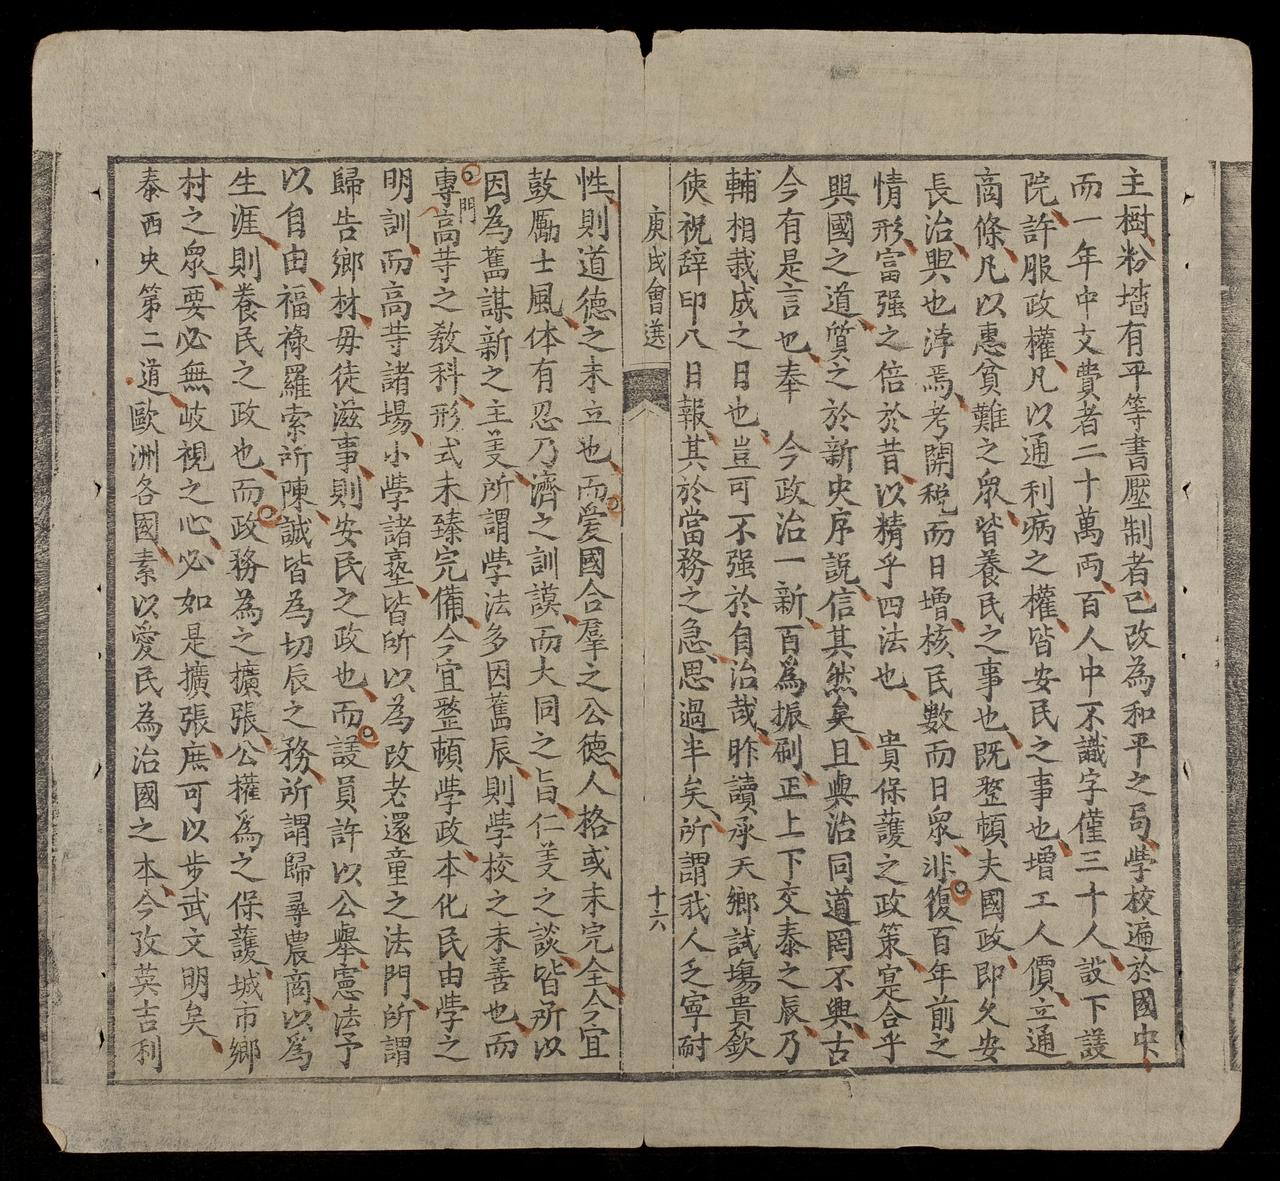 主樹粉墻有平等書壓制者已改為和平之局學校遍於國中
而一年中支費者二十萬両百人中不識字僅三十人設下議
院許服政權凡以通利病之權皆安民之事也增工人價立通
商條凡以惠貧難之眾皆養民之事也既整頓夫國政即久安
長治興也浡焉考関税而日增核民數而日眾非復百年前之
情形富强之倍於昔以精乎四法也　貴保護之政策寔合乎
興國之道質之於新史序説信其然矣且與治同道罔不興古
今有是言也奉　今政治一新百爲振刷正上下交泰之辰乃
輔相裁成之日也豈可不强於自治哉昨讀承天鄉試塲貴欽
使祝辞印八日報其於當務之急思過半矣所謂我人乏寧耐
庚戌會選　十六
性則道德之未立也而愛國合羣之公德人格或未完全今宜
鼓勵士風体有忍乃濟之訓謨而大同之旨仁義之談皆所以
因為舊謀新之主義所謂學法多因舊辰則學校之未善也而
專門高等之教科形式未臻完備今宜整頓學政本化民由學之
明訓而高等諸場小學諸塾皆所以為改老還童之法門所謂
歸告鄉材毋徒滋事則安民之政也而議員許以公舉憲法予
以自由福祿羅索所陳誠皆為切辰之務所謂歸尋農商以爲
生涯則養民之政也而政務為之擴張公權爲之保護城市鄉
村之眾要必無歧視之心必如是擴張庶可以步武文明矣
泰西史第二道歐洲各國素以愛民為治國之本今攷英吉利